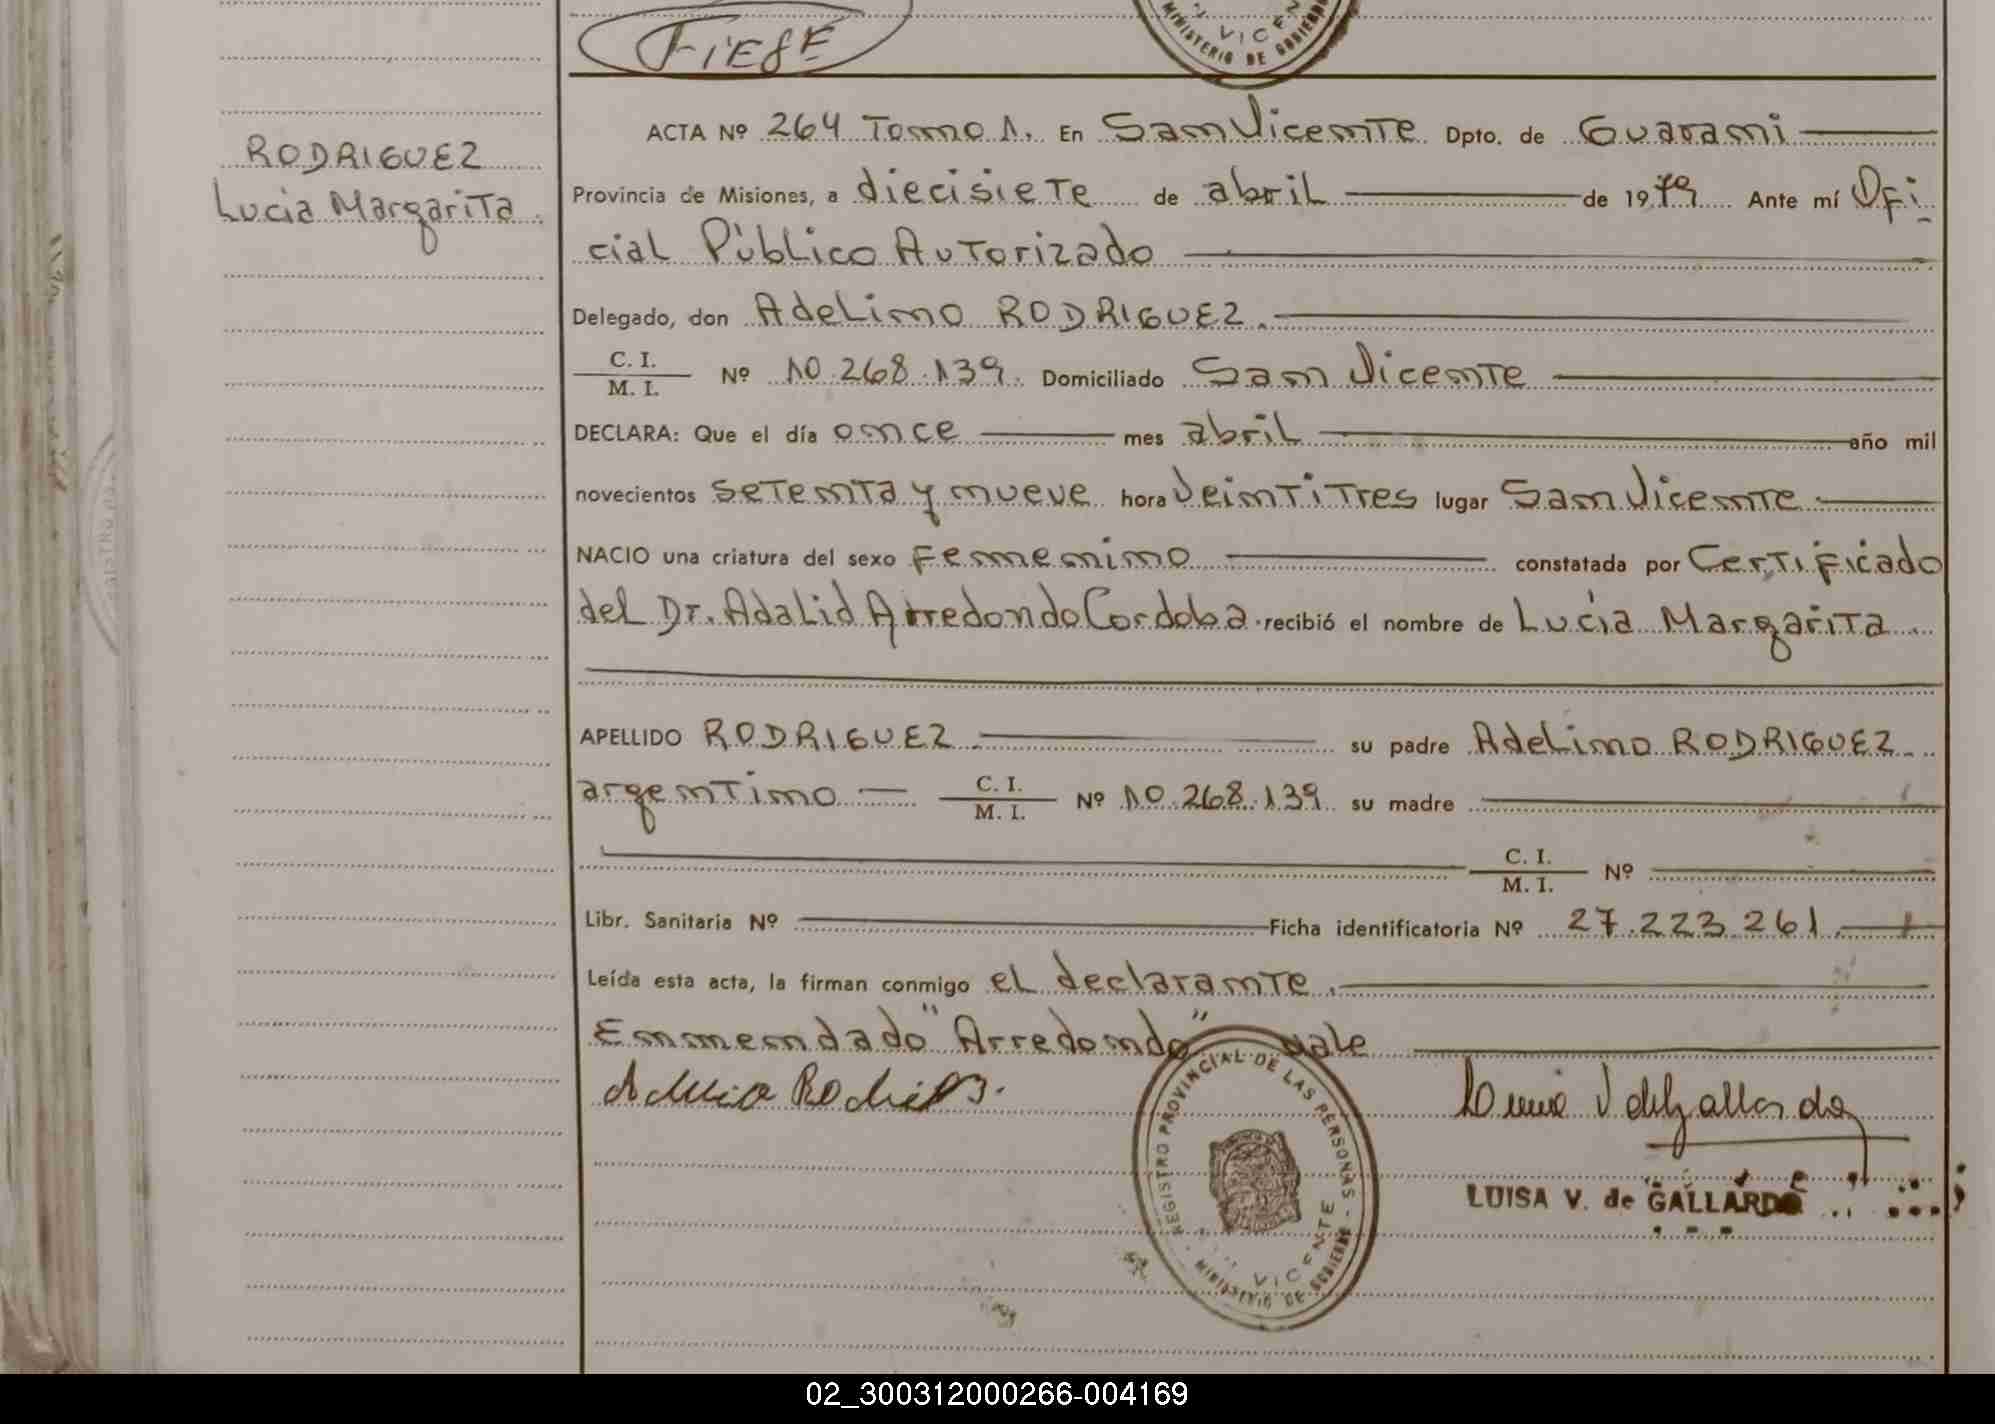 FIESE
VICEN
MINISTERIO DE GOBIERNO
ACTA Nº 264 Tomo 1. En San Vicente Dpto. de Guarani
RODRIGUEZ
Lucia Margarita
Provincia de Misiones, a diecisiete de abril de 1979 Ante mí Ofi
cial Público Autorizado
Delegado, don Adelino RODRIGUEZ.
C. I.
M. I. Nº 10.268.139. Domiciliado San Vicente
DECLARA: Que el día once mes abril año mil
novecientos setenta y nueve hora veintitres lugar San Vicente
NACIO una criatura del sexo femenino constatada por Certificado
del Dr. Adalid Arredondo Cordoba recibió el nombre de Lucía Margarita
APELLIDO RODRIGUEZ su padre Adelino RODRIGUEZ
argentino C. I.
M. I. Nº 10.268.139 su madre
C. I.
M. I. Nº
Libr. Sanitaria Nº Ficha identificatoria Nº 27.223.261
Leída esta acta, la firman conmigo el declarante.
Enmendado "Arredondo" vale
REGISTRO PROVINCIAL DE LAS PERSONAS - MINISTERIO DE GOBIERNO
VICENTE
LUISA V. de GALLARDO
02_300312000266-004169